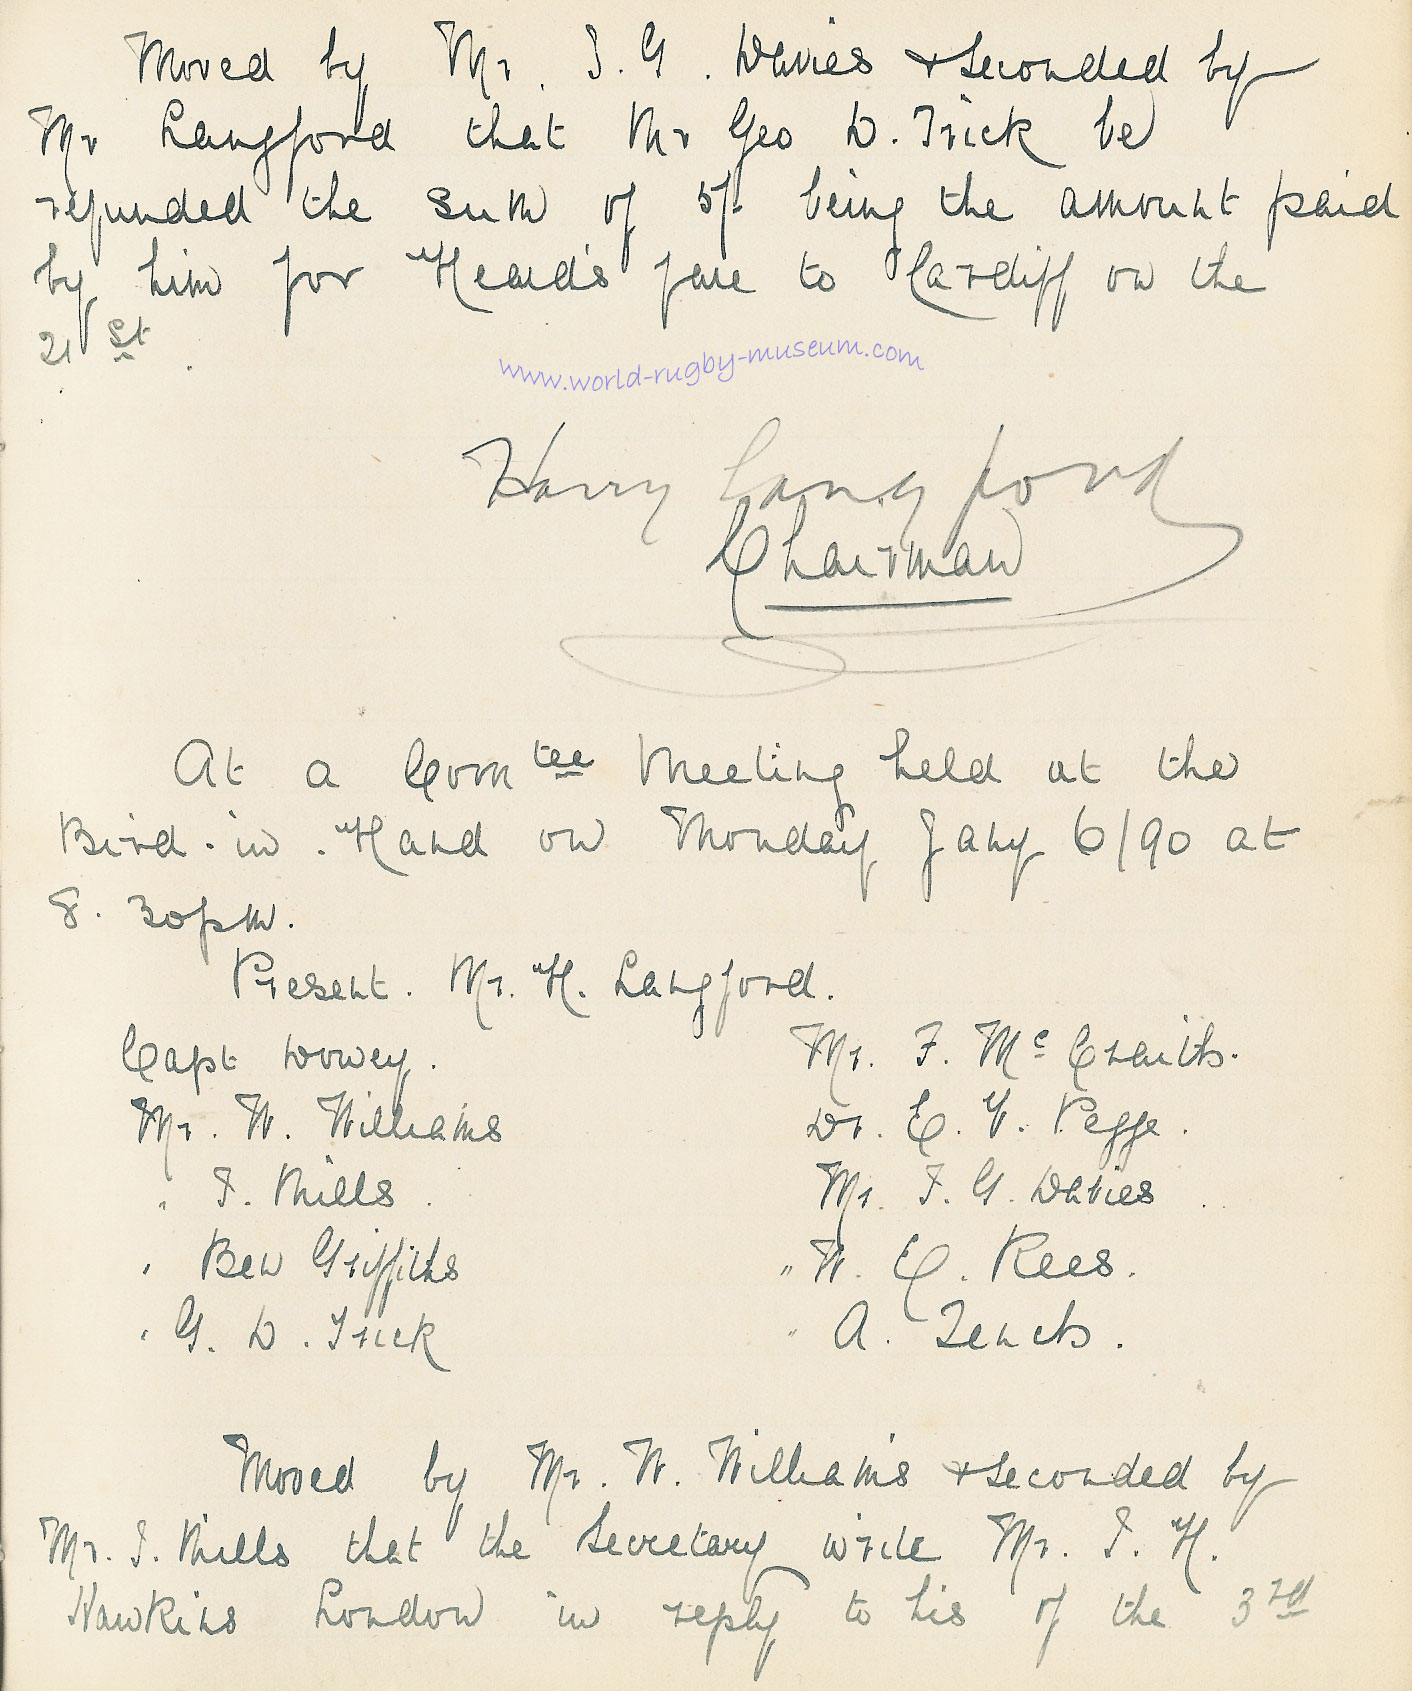 Moved by Mr. J. G. Davies & seconded by
Mr Langford that Mr Geo D. Trick be
refunded the sum of 5/- being the amount paid
by him for Heard's fare to Cardiff on the
21st
www.world-rugby-museum.com
Harry Langford
Chairman
At a Comtee Meeting held at the
Bird-in-Hand on Monday Jany 6/90 at
8.30pm.
Present. Mr. H. Langford.
Capt Dovey. Mr. F. McCraith.
Mr. W. Williams Dr. E. V. Pegge.
" J. Mills. Mr. J. G. Davies
" Ben Griffiths " W. E. Rees.
" G. D. Trick " A. Tench.
Moved by Mr. W. Williams & seconded by
Mr. J. Mills that the Secretary write Mr. J. H.
Hawkins London in reply to his of the 3rd